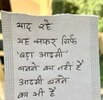 याद रहे
यह सफर सिर्फ
'बड़ा आदमी'
बनने का नहीं है
आदमी बनने
का भी है